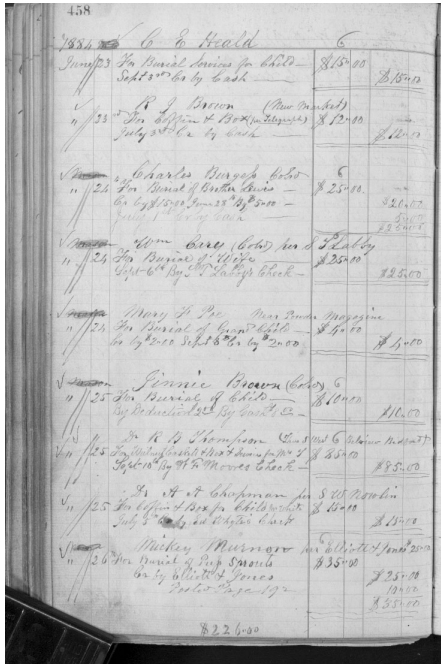 458
1884 C E Heald 6
June 23 For Burial Services for Child $15.00
Sept 3rd Cr by Cash $15.00
R J Brown (New Market)
" 23 For Coffin & Box (per Telegraph) $12.00
July 3rd Cr by Cash $12.00
Charles Burgess Cold 6
" 24 For Burial of Brother Lewis $25.00
Cr by $15.00 June 28th By $5.00 $20.00
July Cr by Cash 5.00
$25.00
Wm Carey (Cold) per S P
" 24 For Burial of Wife $25.00
Sept 6th By S P Check $25.00
Mary F Poe Near Powder Magazine
" 24 For Burial of Grand Child $4.00
Cr by $2.00 Sept 8th Cr by $2.00 $4.00
Jinnie Brown (Cold) 6
" 25 For Burial of Child $10.00
By Deduction By Cash $10.00
Dr R B Thompson
" 25 For Casket & Box & for Mr T $85.00
Sept 10th By W F Moores Check $85.00
Dr A A Chapman per S W Nowlin
" 25 For Coffin & Box for Child white $15.00
July 5 Check $15.00
Mickey per Elliott & Jones
" 26 For Burial of Pup Sprouts $35.00
Cr by Elliott & Jones $25.00
Posted Page 192 10.00
$35.00
$226.00